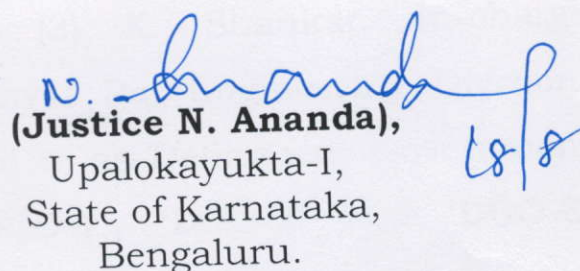 N. Ananda
(Justice N. Ananda),
18/8
Upalokayukta-I,
State of Karnataka,
Bengaluru.